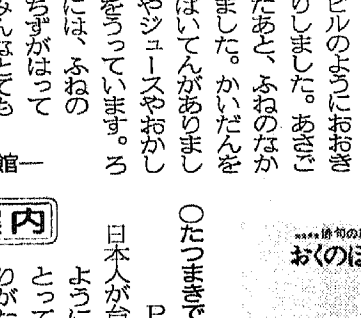 ビルのようにおおき
りしました。あさご
たあと、ふねのなか
ました。かいだんを
ばいてんがありまし
やジュースやおかし
をうっています。ろ
には、ふねの
ちずがはって
みんなとても
館―
俳句の
おくのほ
○たつまきで
P
日本人が台
ように
とって
りがた
内